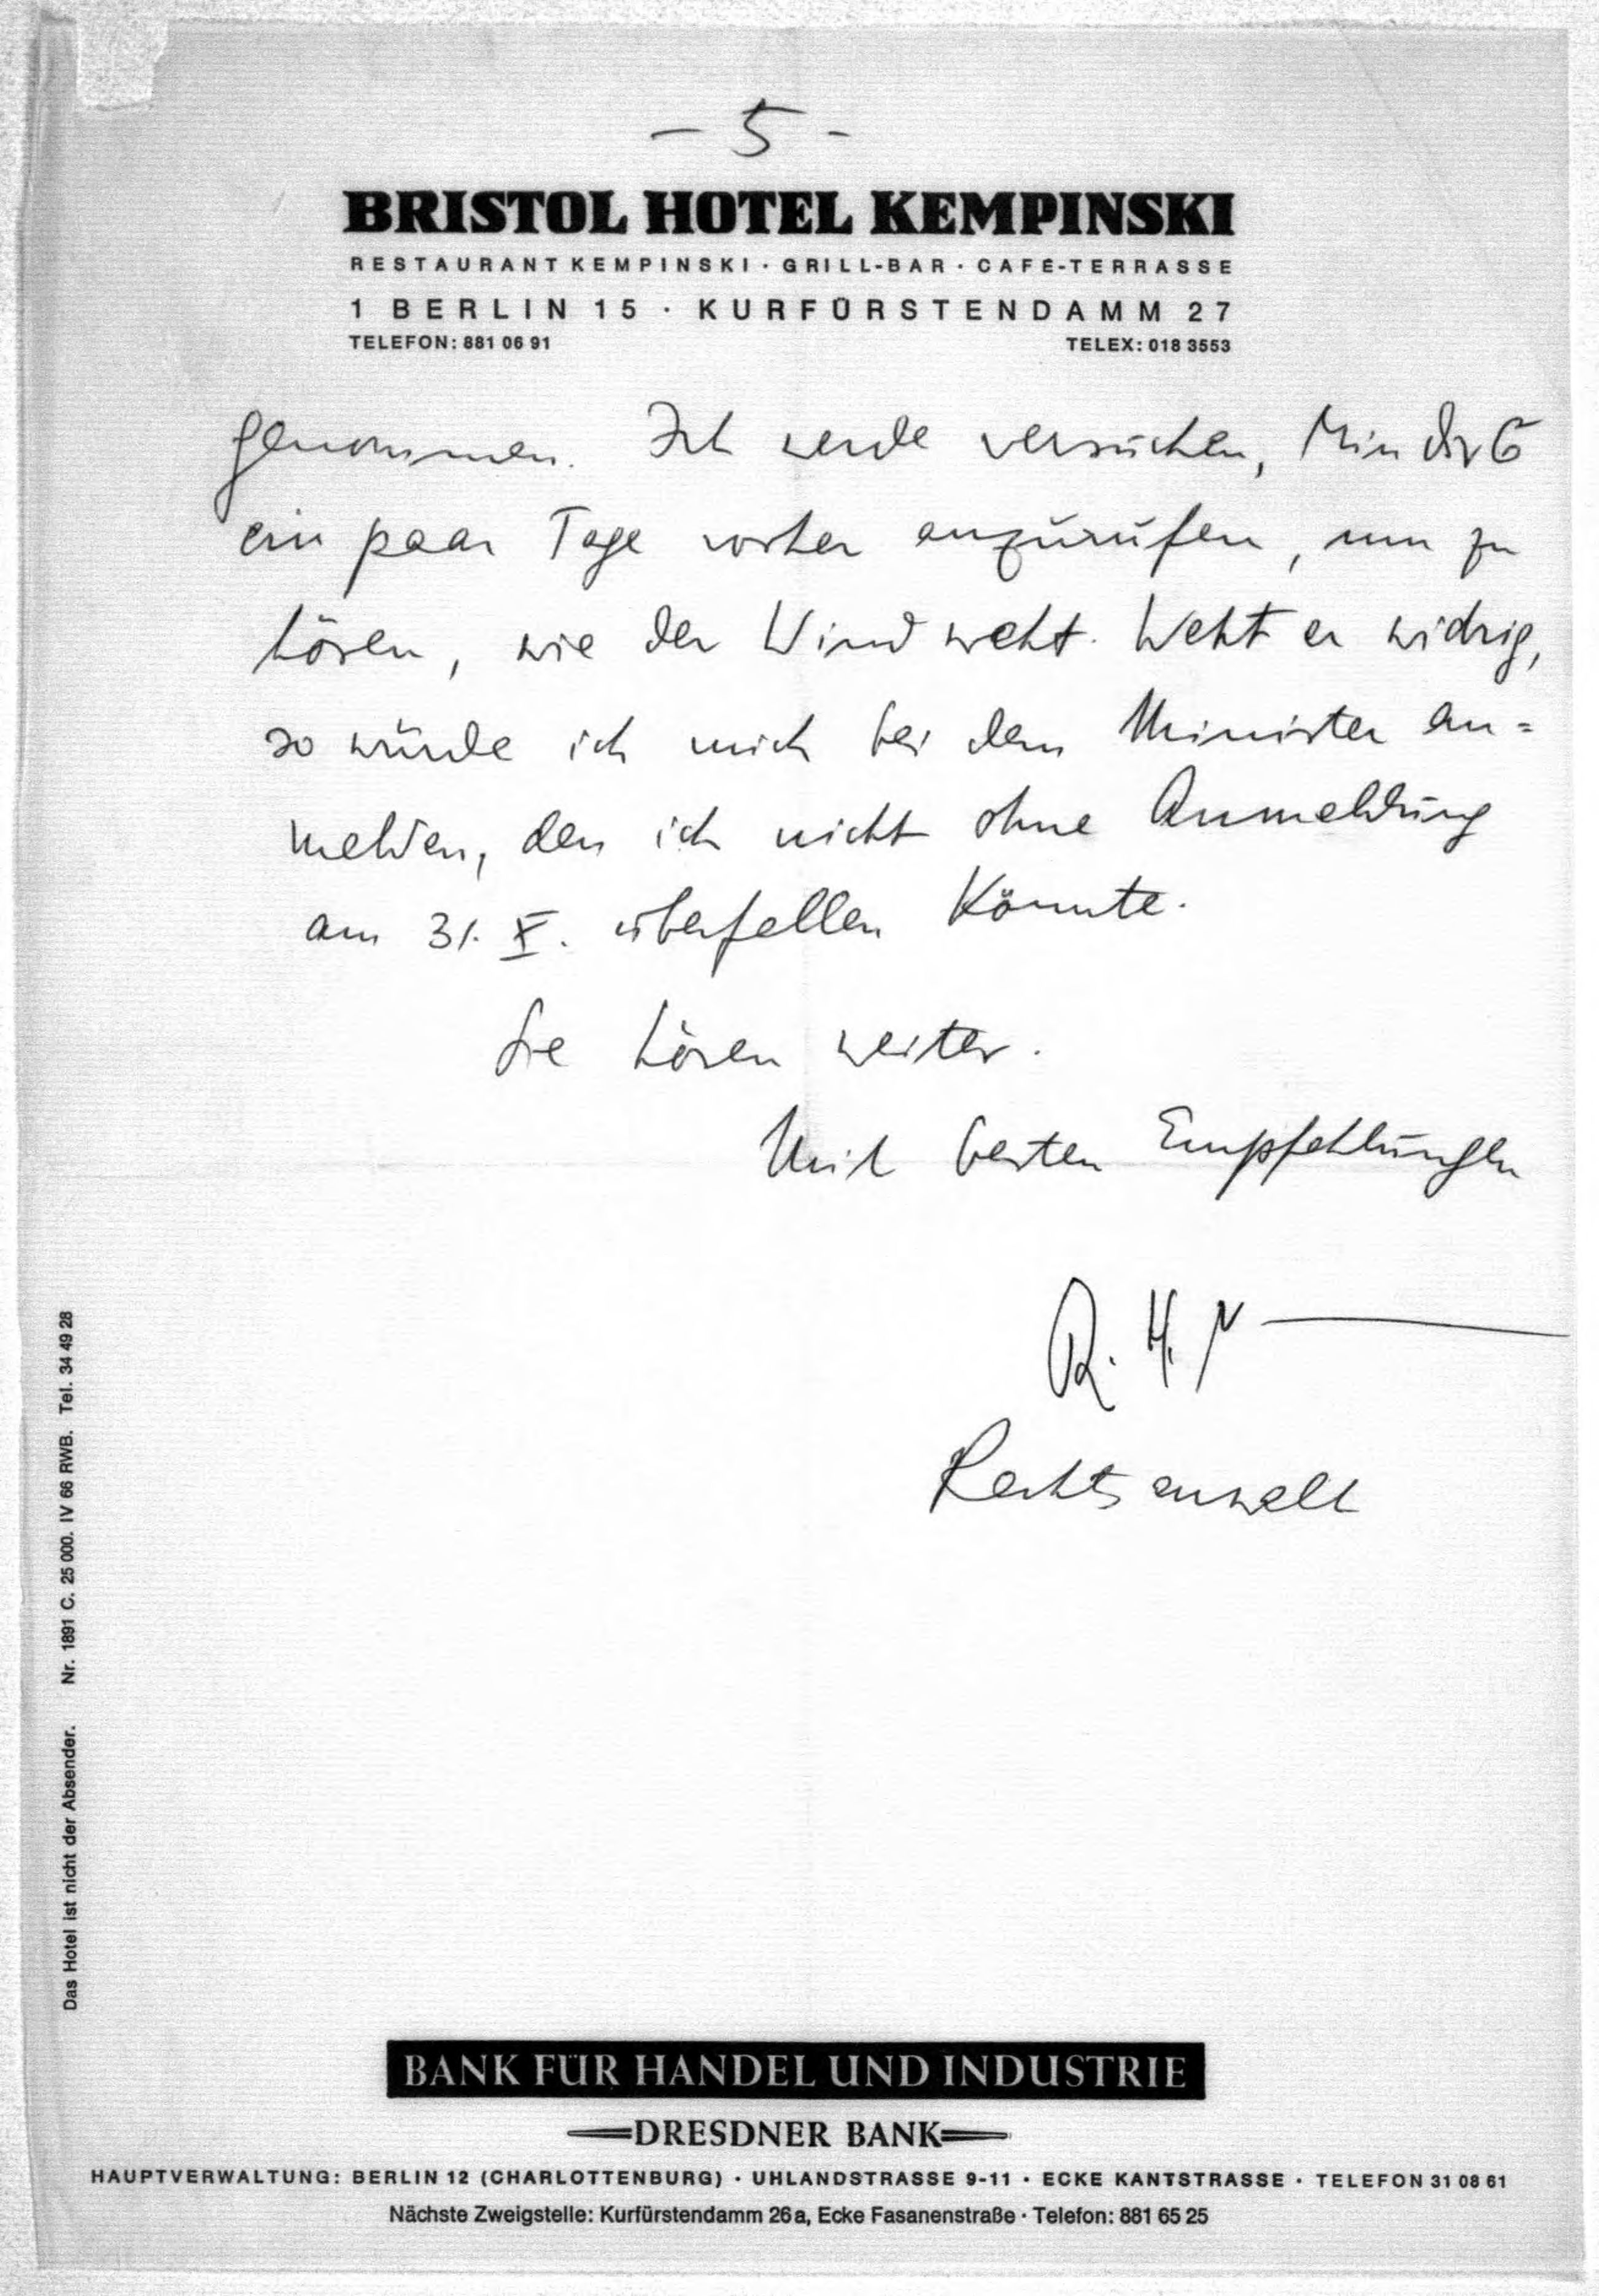 - 5 -
BRISTOL HOTEL KEMPINSKI
RESTAURANT KEMPINSKI · GRILL-BAR · CAFÉ-TERRASSE
1 BERLIN 15 · KURFÜRSTENDAMM 27
TELEFON: 881 06 91 TELEX: 018 3553
genommen. Ich werde versuchen, MinDir G
ein paar Tage vorher anzurufen, um zu
hören, wie der Wind weht. Weht er widrig,
so würde ich mich bei dem Minister an=
melden, den ich nicht ohne Anmeldung
am 31. X. überfallen könnte.
Sie hören weiter.
Mit besten Empfehlungen
R. H.
Rechtsanwalt
Das Hotel ist nicht der Absender. Nr. 1891 C. 25 000. IV 66 RWB. Tel. 34 49 28
BANK FÜR HANDEL UND INDUSTRIE
DRESDNER BANK
HAUPTVERWALTUNG: BERLIN 12 (CHARLOTTENBURG) · UHLANDSTRASSE 9-11 · ECKE KANTSTRASSE · TELEFON 31 08 61
Nächste Zweigstelle: Kurfürstendamm 26a, Ecke Fasanenstraße · Telefon: 881 65 25